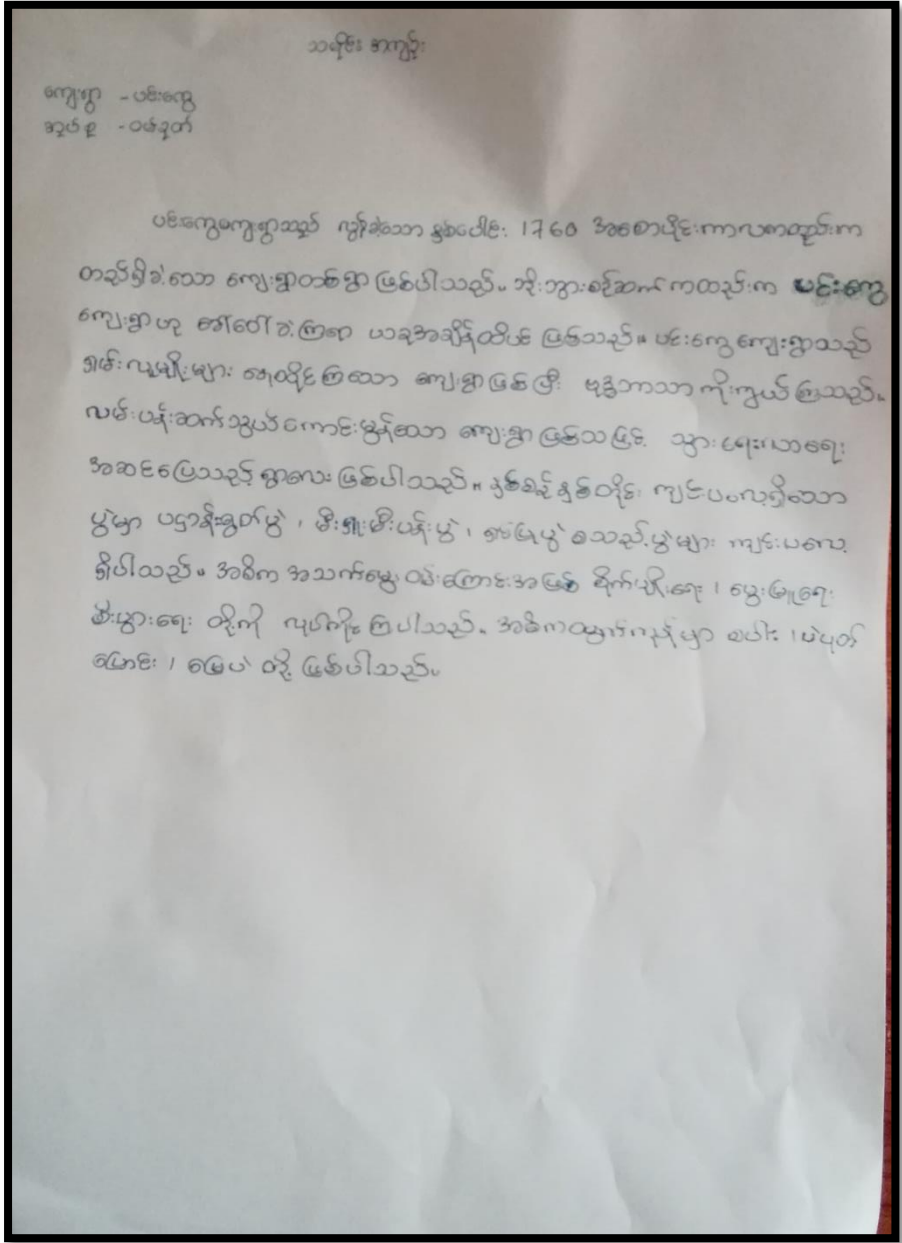 သမိုင်း အကျဉ်း
ကျေးရွာ - ပင်းကွေ
အုပ်စု - ဝမ်ခုတ်
ပင်းကွေကျေးရွာသည် လွန်ခဲ့သော နှစ်ပေါင်း 1760 အစောပိုင်းကာလကတည်းက
တည်ရှိခဲ့သော ကျေးရွာတစ်ရွာ ဖြစ်ပါသည်။ ဘိုးဘွားစဉ်ဆက် ကတည်းက ပင်းကွေ
ကျေးရွာဟု ခေါ်ဝေါ်ခဲ့ကြရာ ယခုအချိန်ထိပင် ဖြစ်သည်။ ပင်းကွေ ကျေးရွာသည်
ရှမ်းလူမျိုးများ နေထိုင်ကြသော ကျေးရွာဖြစ်ပြီး ဗုဒ္ဓဘာသာ ကိုးကွယ်ကြသည်။
လမ်းပန်းဆက်သွယ် ကောင်းမွန်သော ကျေးရွာ ဖြစ်သဖြင့် သွားရေးလာရေး
အဆင်ပြေသည့် ရွာလေး ဖြစ်ပါသည်။ နှစ်စဉ်နှစ်တိုင်း ကျင်းပလေ့ရှိသော
ပွဲမှာ ပဌာန်းရွတ်ပွဲ ၊ မီးရှူးမီးပန်းပွဲ ၊ စသည့်ပွဲများ ကျင်းပလေ့
ရှိပါသည်။ အဓိက အသက်မွေးဝမ်းကြောင်းအဖြစ် စိုက်ပျိုးရေး ၊ မွေးမြူရေး
စီးပွားရေး တို့ကို လုပ်ကိုင်ကြပါသည်။ အဓိကထွက်ကုန်မှာ စပါး ၊ ပဲပုတ်
ပြောင်း ၊ မြေပဲ တို့ ဖြစ်ပါသည်။